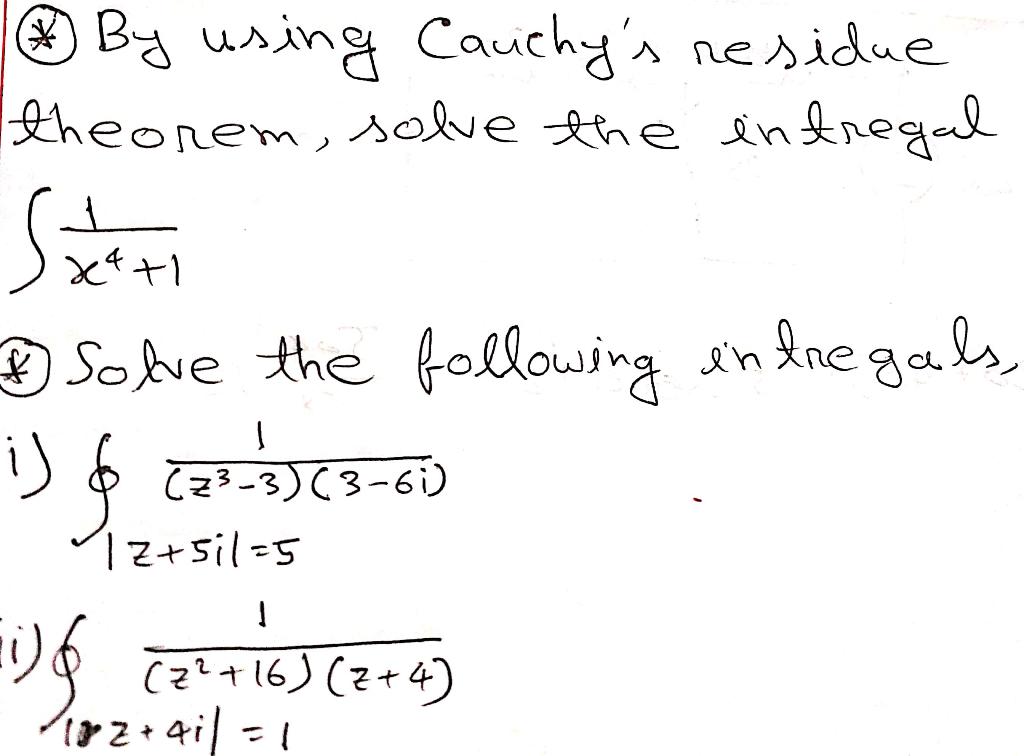 ⊛ By using Cauchy's residue
theorem, solve the intregal
∫ 1/(x⁴+1)
⊛ Solve the following intregals,
i) ∮ 1/((z³-3)(3-6i))
|z+5i|=5
ii) ∮ 1/((z²+16)(z+4))
|z+4i|=1